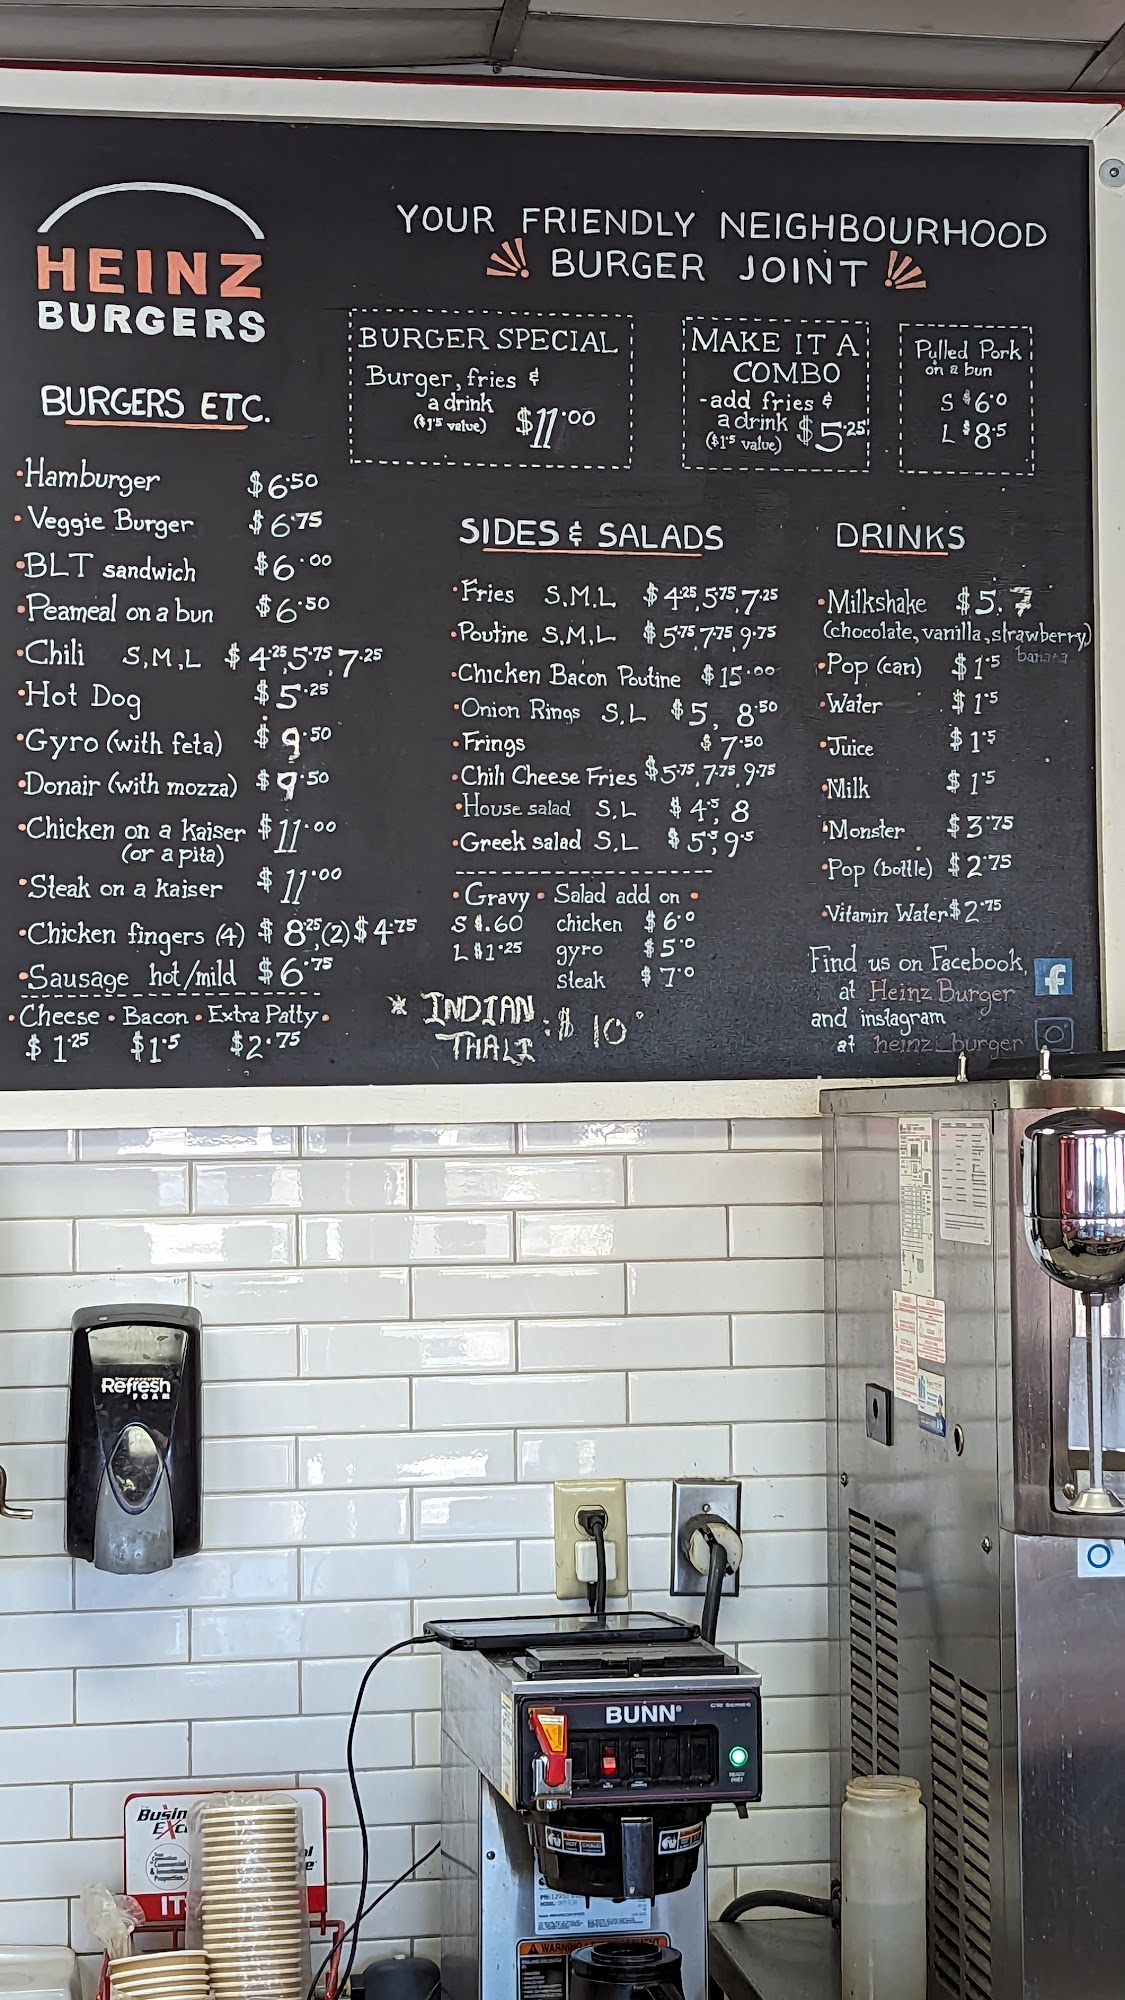 YOUR FRIENDLY NEIGHBOURHOOD
BURGER JOINT
HEINZ
BURGERS
BURGERS ETC.
•Hamburger $6.50
•Veggie Burger $6.75
•BLT sandwich $6.00
•Peameal on a bun $6.50
•Chili S,M,L $4.25,5.75,7.25
•Hot Dog $5.25
•Gyro (with feta) $9.50
•Donair (with mozza) $9.50
•Chicken on a Kaiser $11.00
(or a pita)
•Steak on a Kaiser $11.00
•Chicken fingers (4) $8.25,(2)$4.75
•Sausage hot/mild $6.75
•Cheese •Bacon •Extra Patty•
$1.25 $1.5 $2.75
BURGER SPECIAL
Burger, fries &
a drink
($1.5 value) $11.00
MAKE IT A
COMBO
-add fries &
a drink $5.25
($1.5 value)
Pulled Pork
on a bun
S $6.0
L $8.5
SIDES & SALADS
•Fries S,M,L $4.25,5.75,7.25
•Poutine S,M,L $5.75,7.75,9.75
•Chicken Bacon Poutine $15.00
•Onion Rings S,L $5, 8.50
•Frings $7.50
•Chili Cheese Fries $5.75,7.75,9.75
•House salad S,L $4.5, 8
•Greek salad S,L $5.5, 9.5
•Gravy• Salad add on•
S $.60 chicken $6.0
L $1.25 gyro $5.0
steak $7.0
* INDIAN
THALI : $10
DRINKS
•Milkshake $5.
(chocolate, vanilla, strawberry)
banana
•Pop (can) $1.5
•Water $1.5
•Juice $1.5
•Milk $1.5
•Monster $3.75
•Pop (bottle) $2.75
•Vitamin Water $2.75
Find us on Facebook,
at Heinz Burger
and instagram
at heinz_burger
Refresh
FOAM
BUNN®
READY
Busin
IT
WARNING